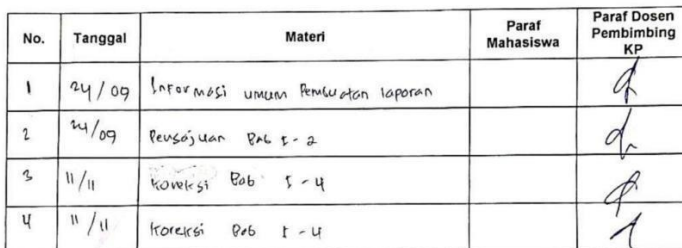 No. Tanggal Materi Paraf Mahasiswa Paraf Dosen Pembimbing KP
1 24/09 Informasi umum Pembuatan laporan
2 24/09 Pengajuan Bab I - 2
3 11/11 Koreksi Bab I - 4
4 11/11 Koreksi Bab I - 4